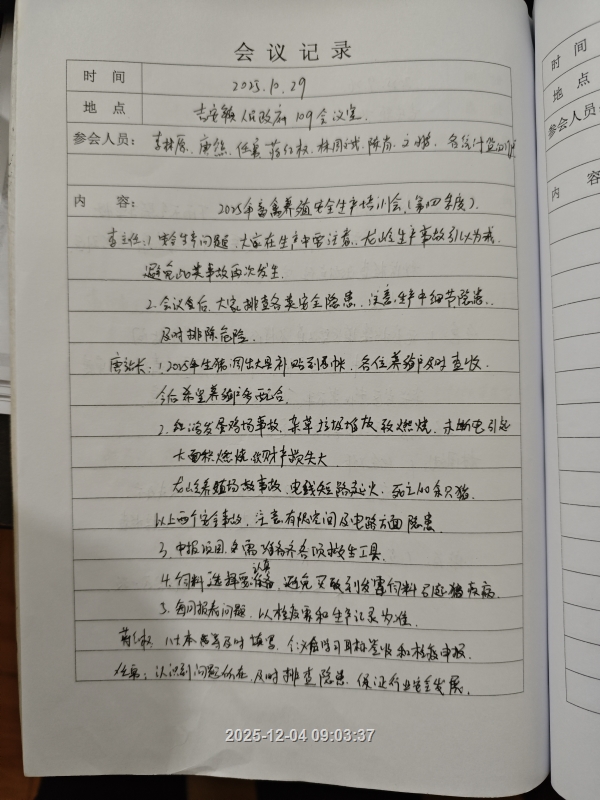 会议记录
时间 2025.10.29
地点 吉安镇人民政府109会议室
参会人员： 李林原、唐熊、任寡、蒋红权、林国武、陈肖、各位
内容： 2025年畜禽养殖安全生产培训会（第四季度）.
李主任：1.安全生产问题，大家在生产中要注意，龙岭生产事故引以为戒.
避免此类事故再次发生.
2.会议会后，大家排查各类安全隐患，注意生产中细节隐患.
及时排除危险.
唐站长：1.2025年生猪调出大县补贴到账，各位养殖户及时查收.
今后希望养殖户多配合.
2.红海发展鸡场事故，杂草垃圾堆放致燃烧，未断电引起
大面积燃烧，致财产损失大
龙岭养殖场故事故，电线短路起火，死亡110余只猪.
以上两个安全事故，注意有限空间及电路方面隐患.
3.申报项目，只需准备齐各项救生工具.
4.饲料选择要认真，避免买取到发霉饲料引起猪疾病.
5.每月报表问题，以检疫票和生产记录为准.
蒋红权 八本要及时填写，学习耳标签收和检疫申报.
任：认识到问题所在，及时排查隐患，保证行业安全发展.
时间
地点
参会人员
内
2025-12-04 09:03:37